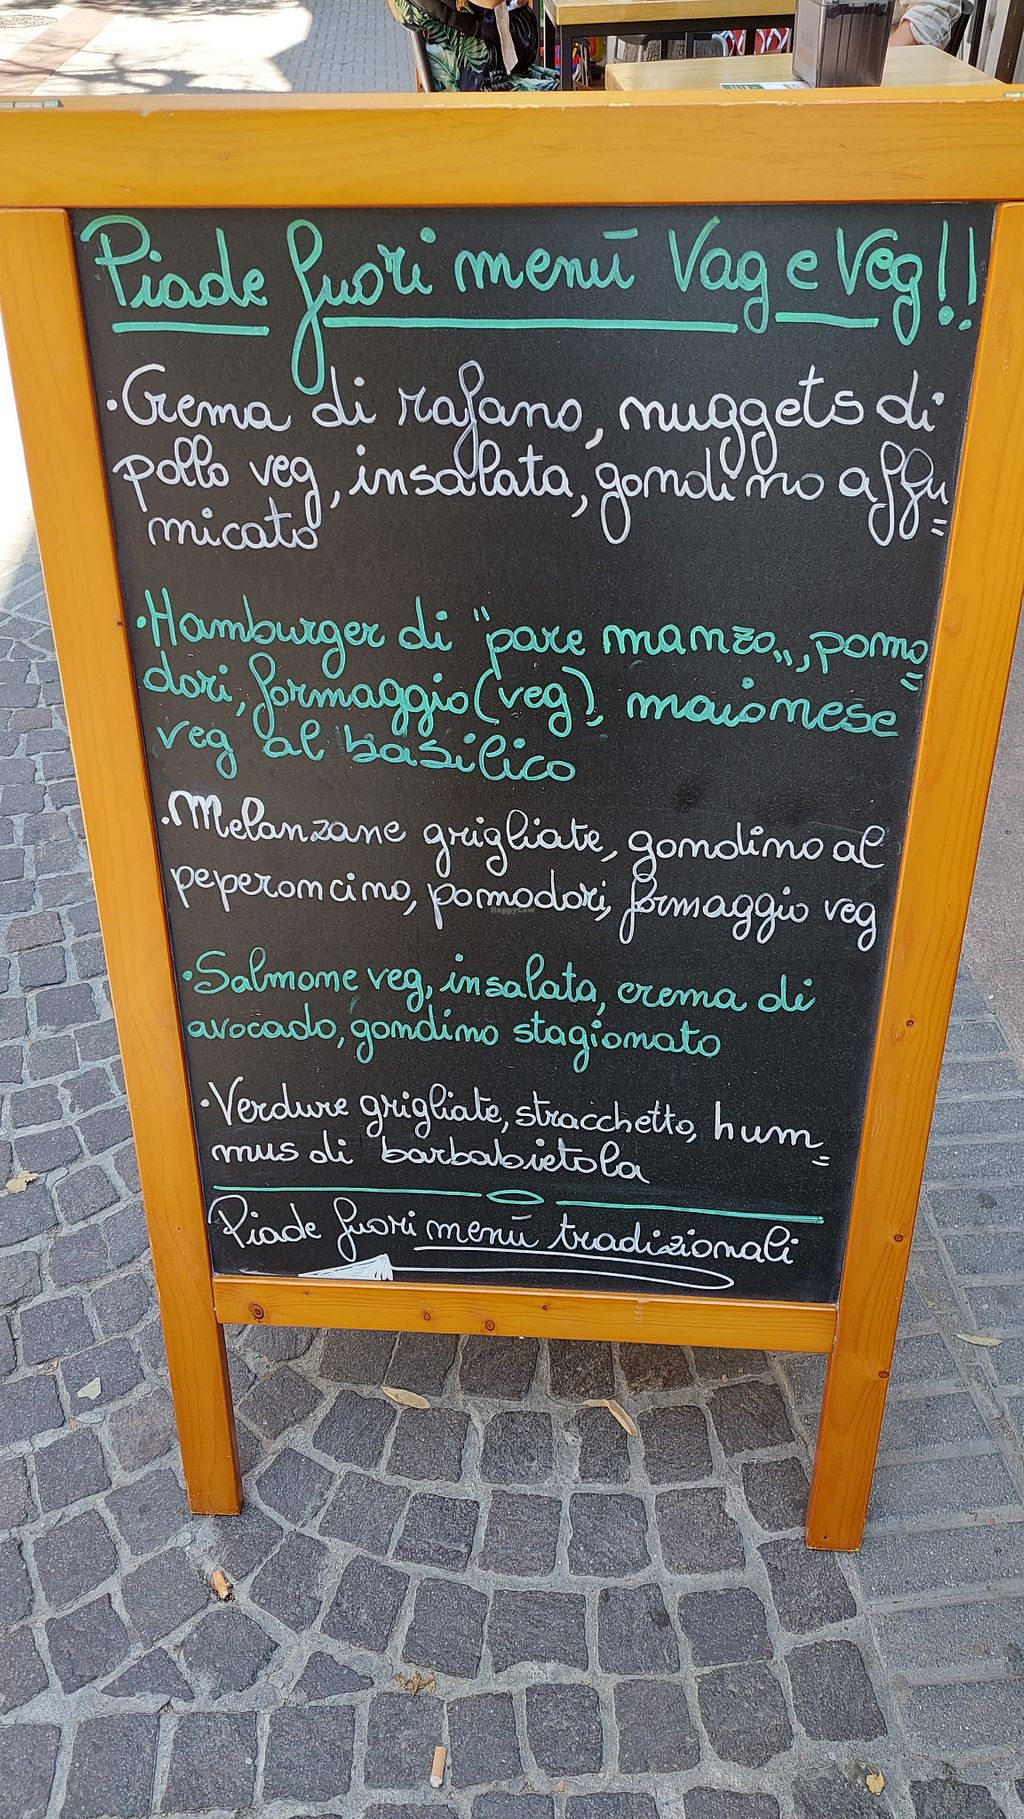 Piade fuori menū Vag e Veg!!
·Crema di rafano, nuggets di
pollo veg, insalata, gondino affu=
micato
·Hamburger di "pare manzo", pomo=
dori, formaggio (veg), maionese
veg al basilico
·Melanzane grigliate, gondino al
peperoncino, pomodori, formaggio veg
·Salmone veg, insalata, crema di
avocado, gondino stagionato
·Verdure grigliate, stracchetto, hum=
mus di barbabietola
Piade fuori menū tradizionali
HappyCow